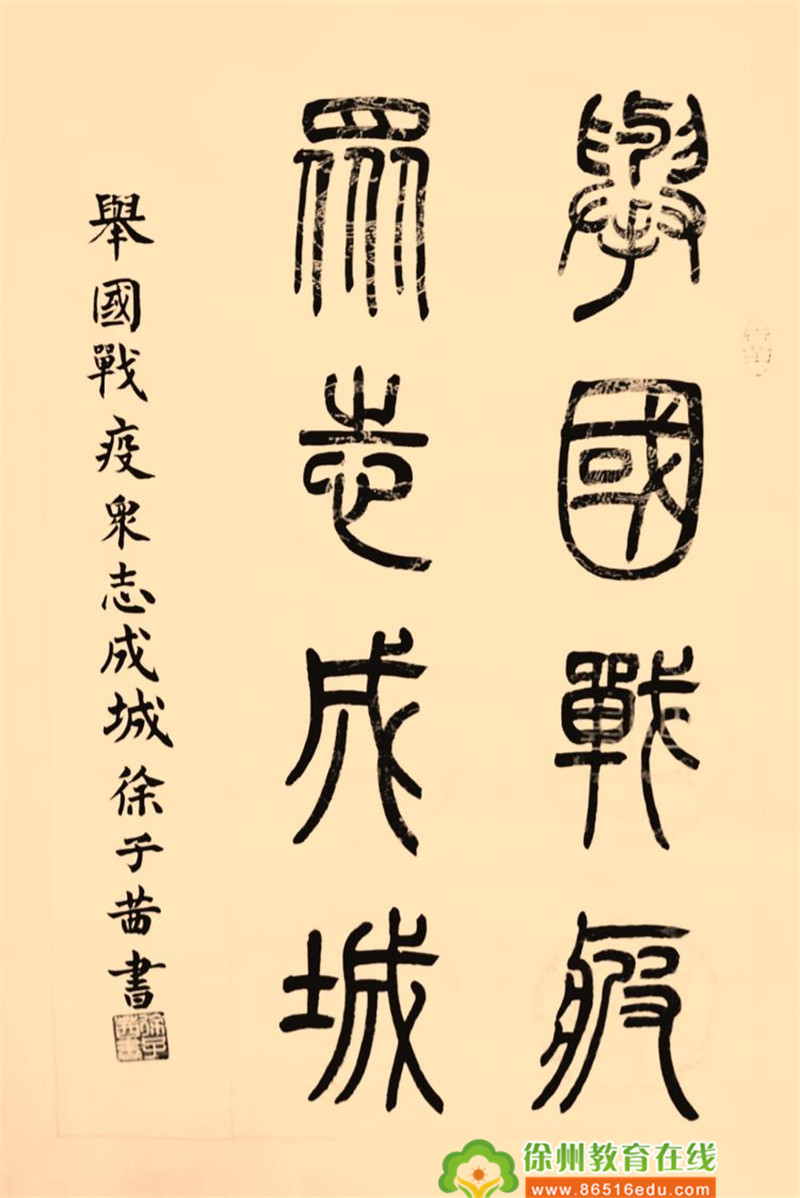 舉國戰疫
眾志成城
舉國戰疫眾志成城徐子茜書
徐州教育在线
www.86516edu.com